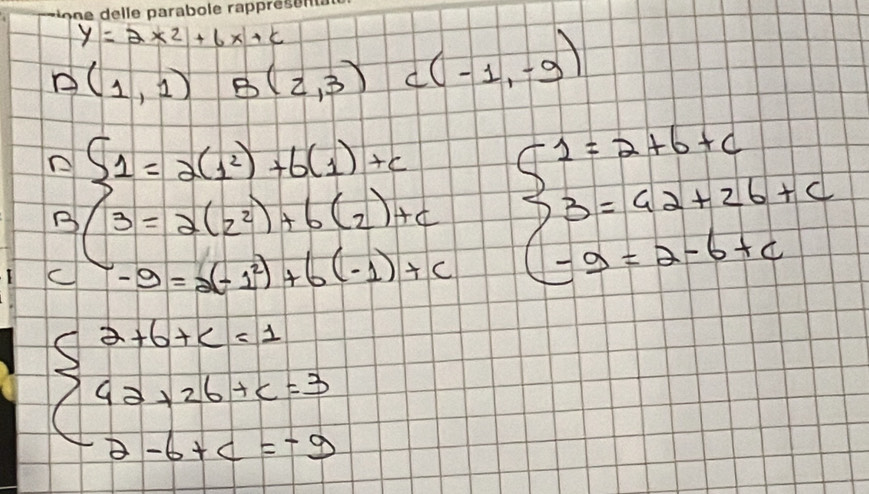 zione delle parabole rappresentate
y = ax² + bx + c
A(1,1) B(2,3) C(-1,-9)
A { 1 = a(1²) + b(1) + c
B 3 = a(2²) + b(2) + c
C -9 = a(-1²) + b(-1) + c
{ 1 = a + b + c
3 = 4a + 2b + c
-9 = a - b + c
{ a + b + c = 1
4a + 2b + c = 3
a - b + c = -9